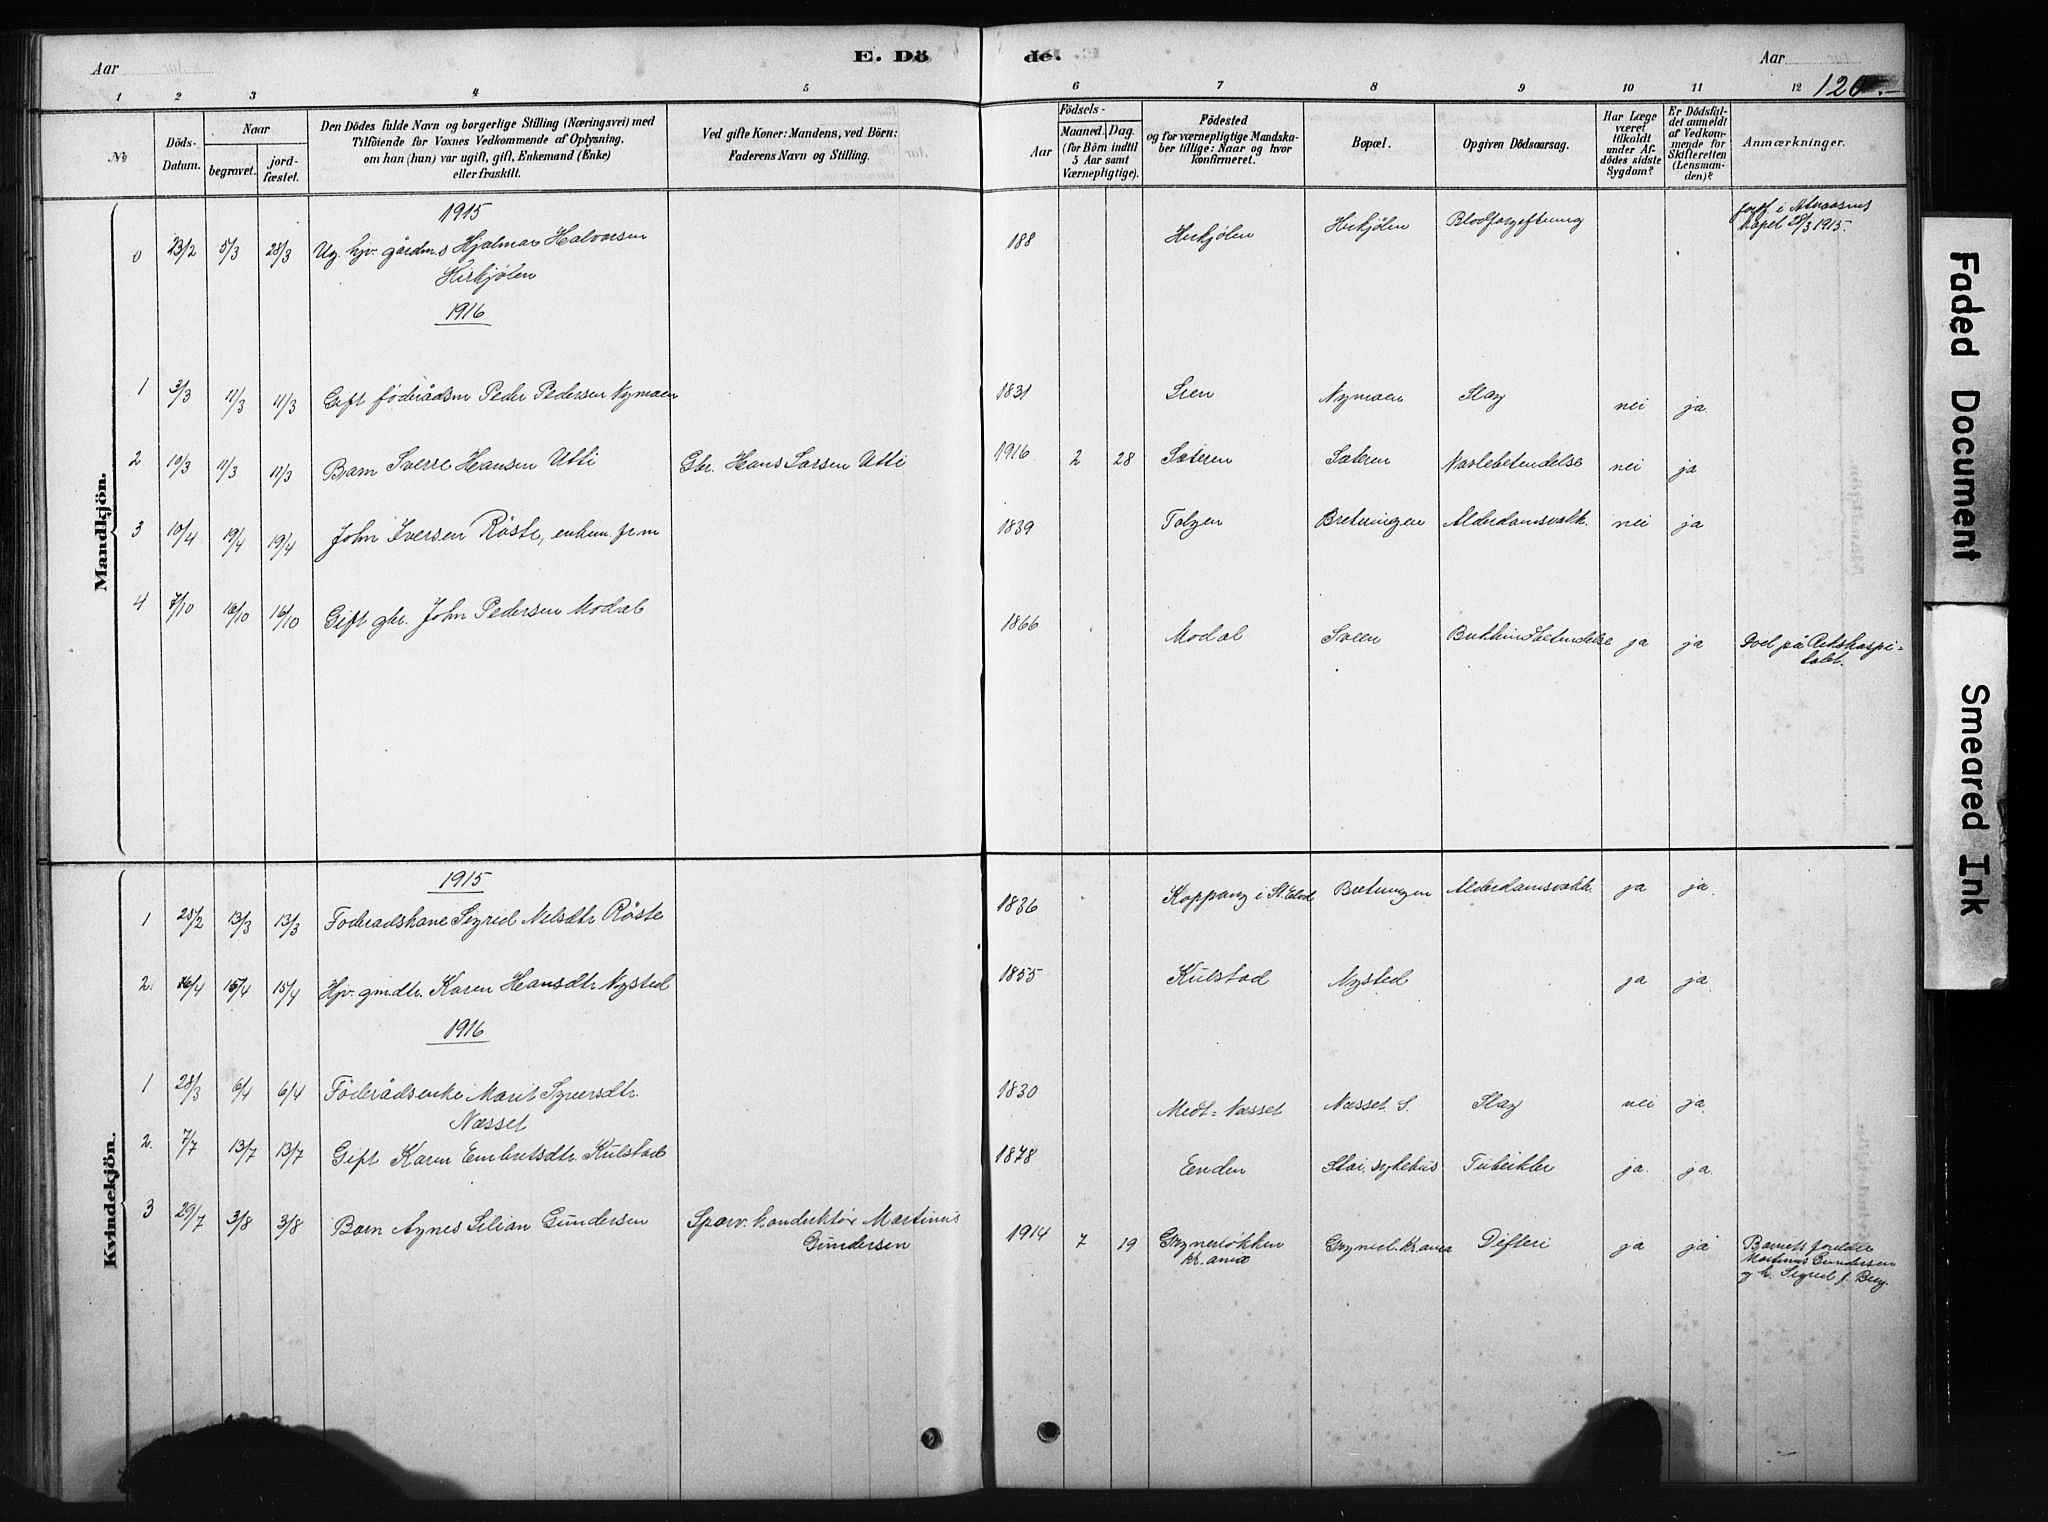 Aar E. Dö de. Aar 126.
1 2 3 4 5 6 7 8 9 10 11 12
№ Döds-Datum. Naar begravet. jordfæstet.
Den Dödes fulde Navn og borgerlige Stilling (Næringsvei) med
Tilföiende for Voxnes Vedkommende af Oplysning,
om han (hun) var ugift, gift, Enkemand (Enke)
eller fraskilt.
Ved gifte Koner: Mandens, ved Börn:
Faderens Navn og Stilling.
Födsels-
Aar Maaned. Dag.
(for Börn indtil
5 Aar samt
Værnepligtige).
Födested
og for værnepligtige Mandskaber tillige: Naar og hvor
konfirmeret.
Bopæl.
Opgiven Dödsaarsag.
Har Læge
været
tilkaldt
under Afdödes sidste
Sygdom?
Er Dödsfaldet anmeldt
af Vedkommende for
Skifteretten
(Lensmanden)?
Anmærkninger.
Mandkjön.
1915
0 23/2 5/3 28/3 Ug. hjv. gårdm.s Hjalmar Halvorsen 188 Hirkjølen Hirkjølen Blodforgiftning jordf. i Atnaosens
Hirkjølen kapel 28/3 1915.
1916
1 3/3 11/3 11/3 Gift føderådsm Peder Pedersen Nymoen 1831 Lien Nymoen Slag nei ja.
2 10/3 11/3 11/3 Barn Sverre Hansen Utti Gbr. Hans Larsen Utti 1916 2 28 Sæteren Sæteren Navlebetendelse nei ja
3 10/4 19/4 19/4 John Iversen Røste, enkem. fr m 1839 Tolgen Bretningen Alderdomsvakk. nei ja
4 7/10 16/10 16/10 Gift gbr. John Pedersen Modal 1866 Modal Sveen Bukhindbetendelse ja ja Død på Rikshospi-
talet.
Kvindekjön.
1915
1 28/2 13/3 13/3 Føderådskone Sigrid Nilsdtr Røste 1836 Koppang i St. Elvd. Bretningen Alderdomsvakk. ja ja.
2. 16/4 15/4 15/4 Hjv. gm.dtr. Karen Hansdtr Nysted 1855 Kulstad Nysted ja ja.
1916
1 28/3 6/4 6/4 Føderådsenke Marit Syversdtr. 1830 Medt=Næsset Næsset. S. Slag nei ja.
Næsset
2. 7/7 13/7 13/7 Gift Karen Embretsdtr. Kulstad 1878 Enden Stai sykehus Tuberkler ja. ja.
3 29/7 3/8 3/8 Barn Agnes Lilian Gundersen Sporv. konduktör Martinus 1914 7 19 Grynerløkken Grynerl. Kr.ania Difteri ja ja Barnets foreldre
Gundersen Kr.ania Martinus Gundersen
og h. Sigrid f. Berg.
Faded Document
Smeared Ink